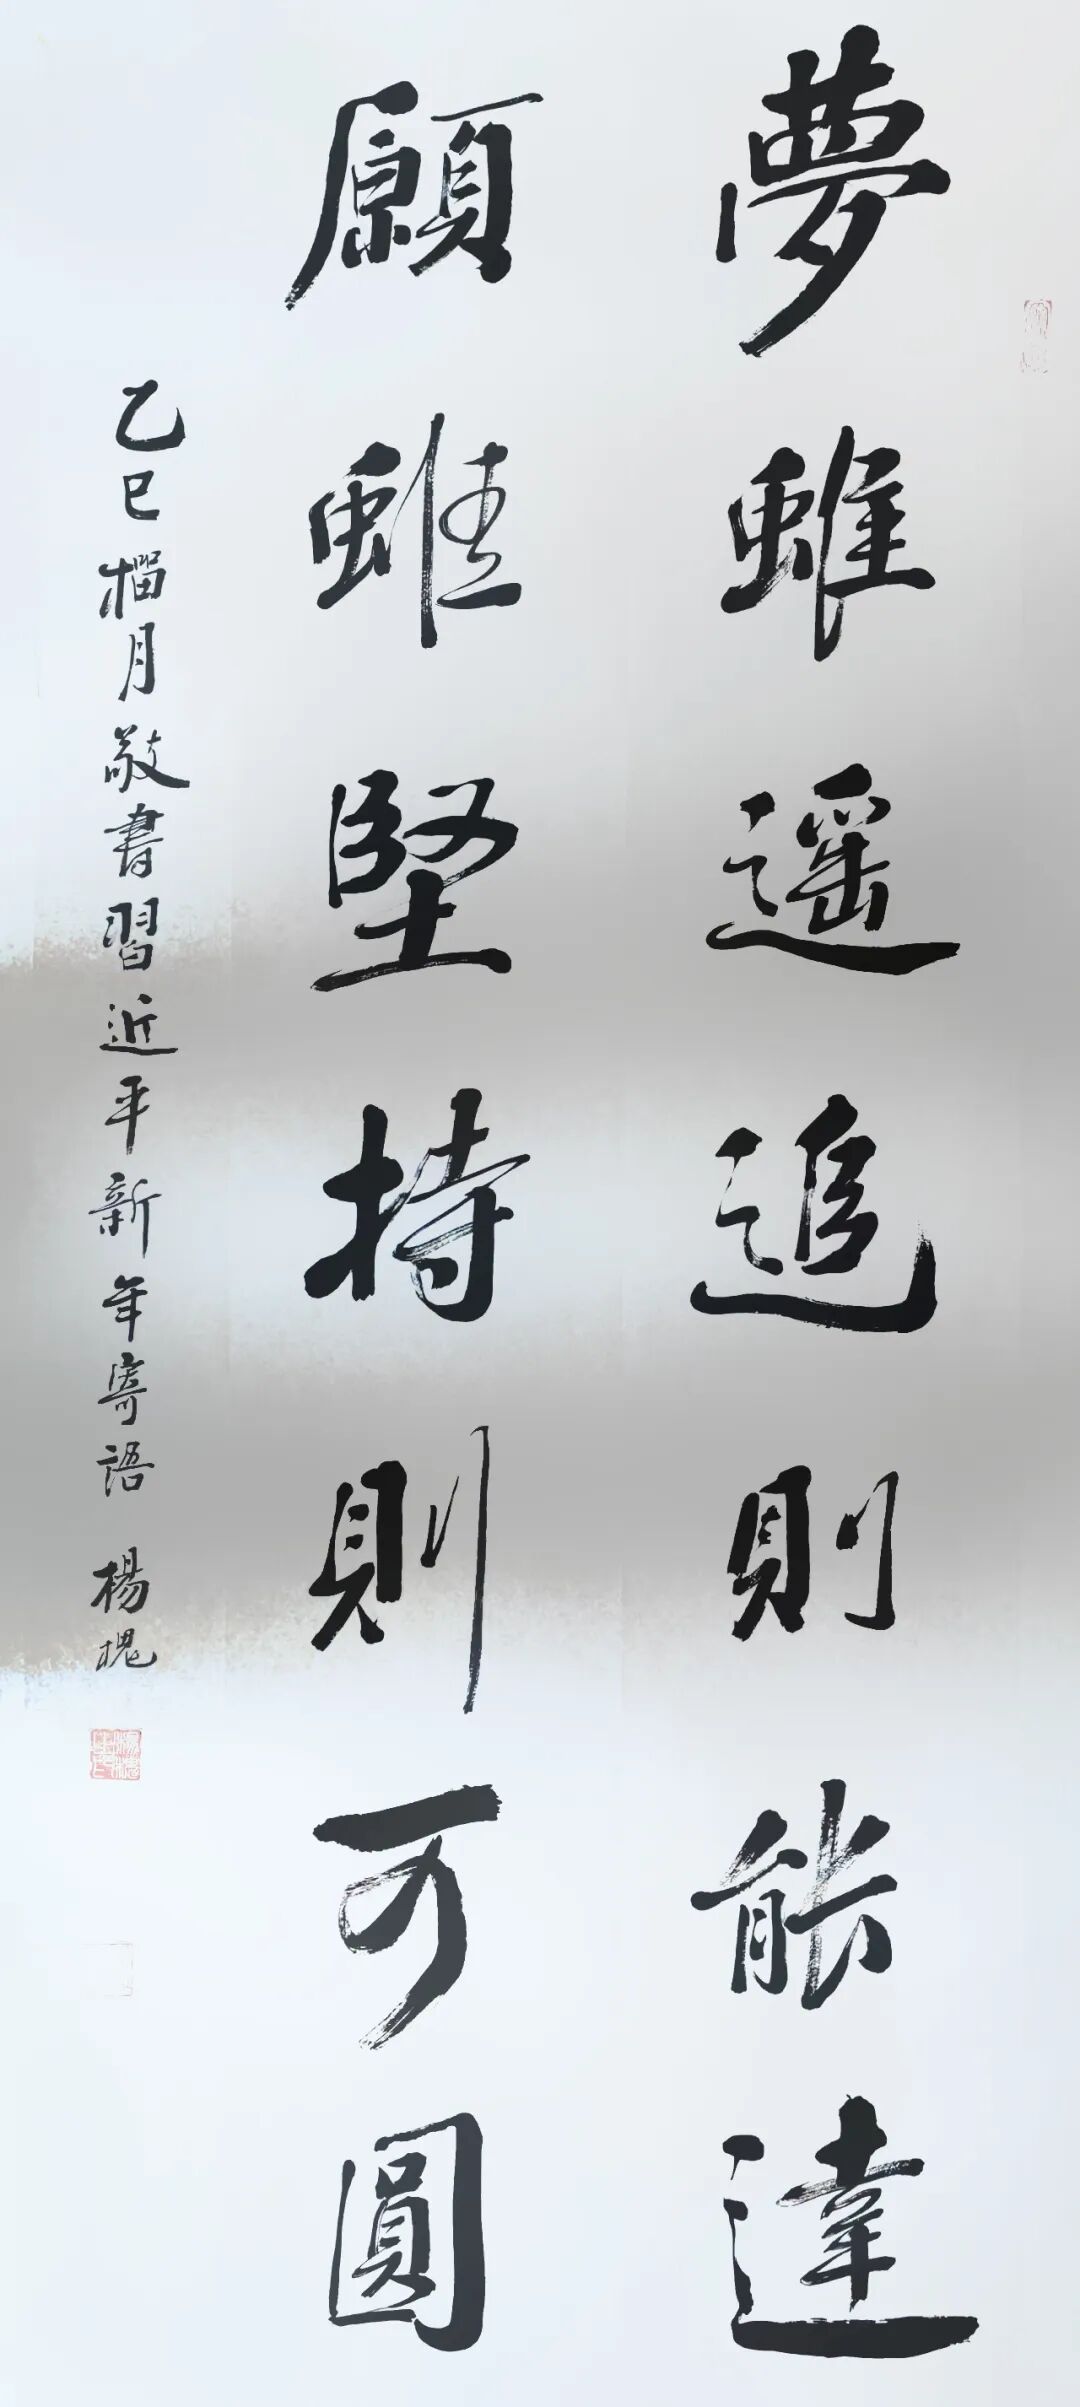 夢雖遥追則能達
願雖堅持則可圓
乙巳榴月敬書習近平新年寄語 楊槐